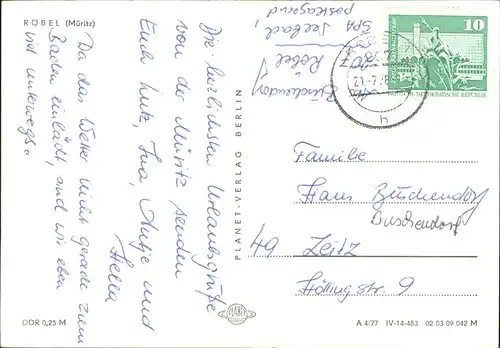 RÖBEL (Müritz)
Die herzlichsten Urlaubsgrüße
von der Müritz senden
Euch Lutz, Ina, Antje und
Hella
Da das Wetter nicht gerade zum
Baden einlädt, sind wir eben
viel unterwegs.
Büschendorf
Röbel
Seebad,
SPA
postlagernd
10
DEUTSCHE DEMOKRATISCHE REPUBLIK
Familie
Hans Büschendorf
Buschendorf
49 Zeitz
Höllingstr. 9
PLANET-VERLAG BERLIN
DDR 0,25 M
A 4/77 IV-14-483 02 03 09 042 M